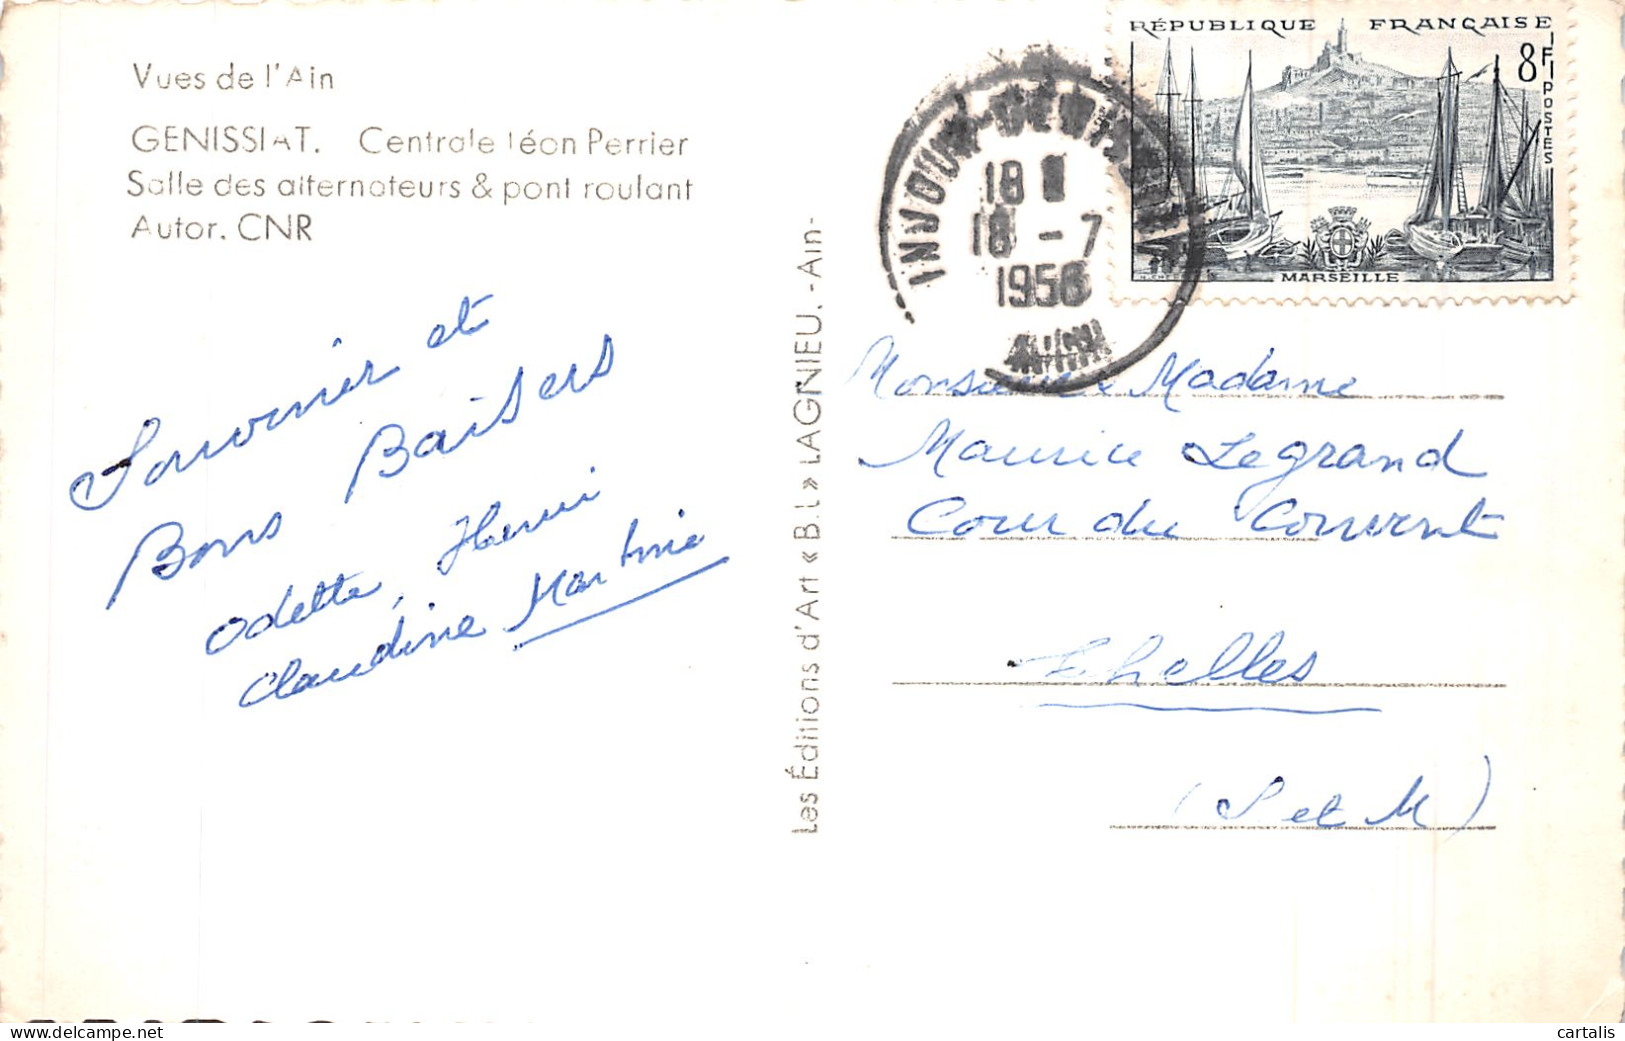 Vues de l'Ain
GENISSIAT. Centrale Léon Perrier
Salle des alternateurs & pont roulant
Autor. CNR
Souvenir et
Bons Baisers
Odette, Henri
Claudine Martine
Les Éditions d'Art « B.L » LAGNIEU. -Ain-
RÉPUBLIQUE FRANÇAISE
8F
POSTES
MARSEILLE
18
18 -7
1956
Monsieur & Madame
Maurice Legrand
Cour du Couvent
Chelles
(S et M)
cartalis
www.delcampe.net